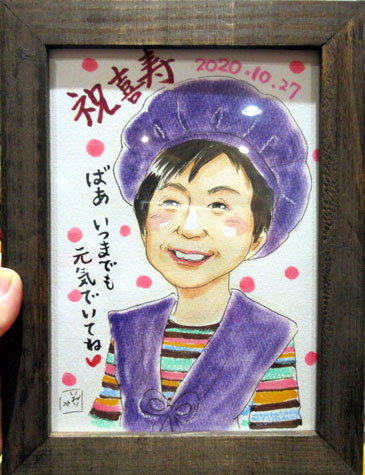 祝喜寿
2020.10.27
ばあ いつまでも
元気でいてね♥